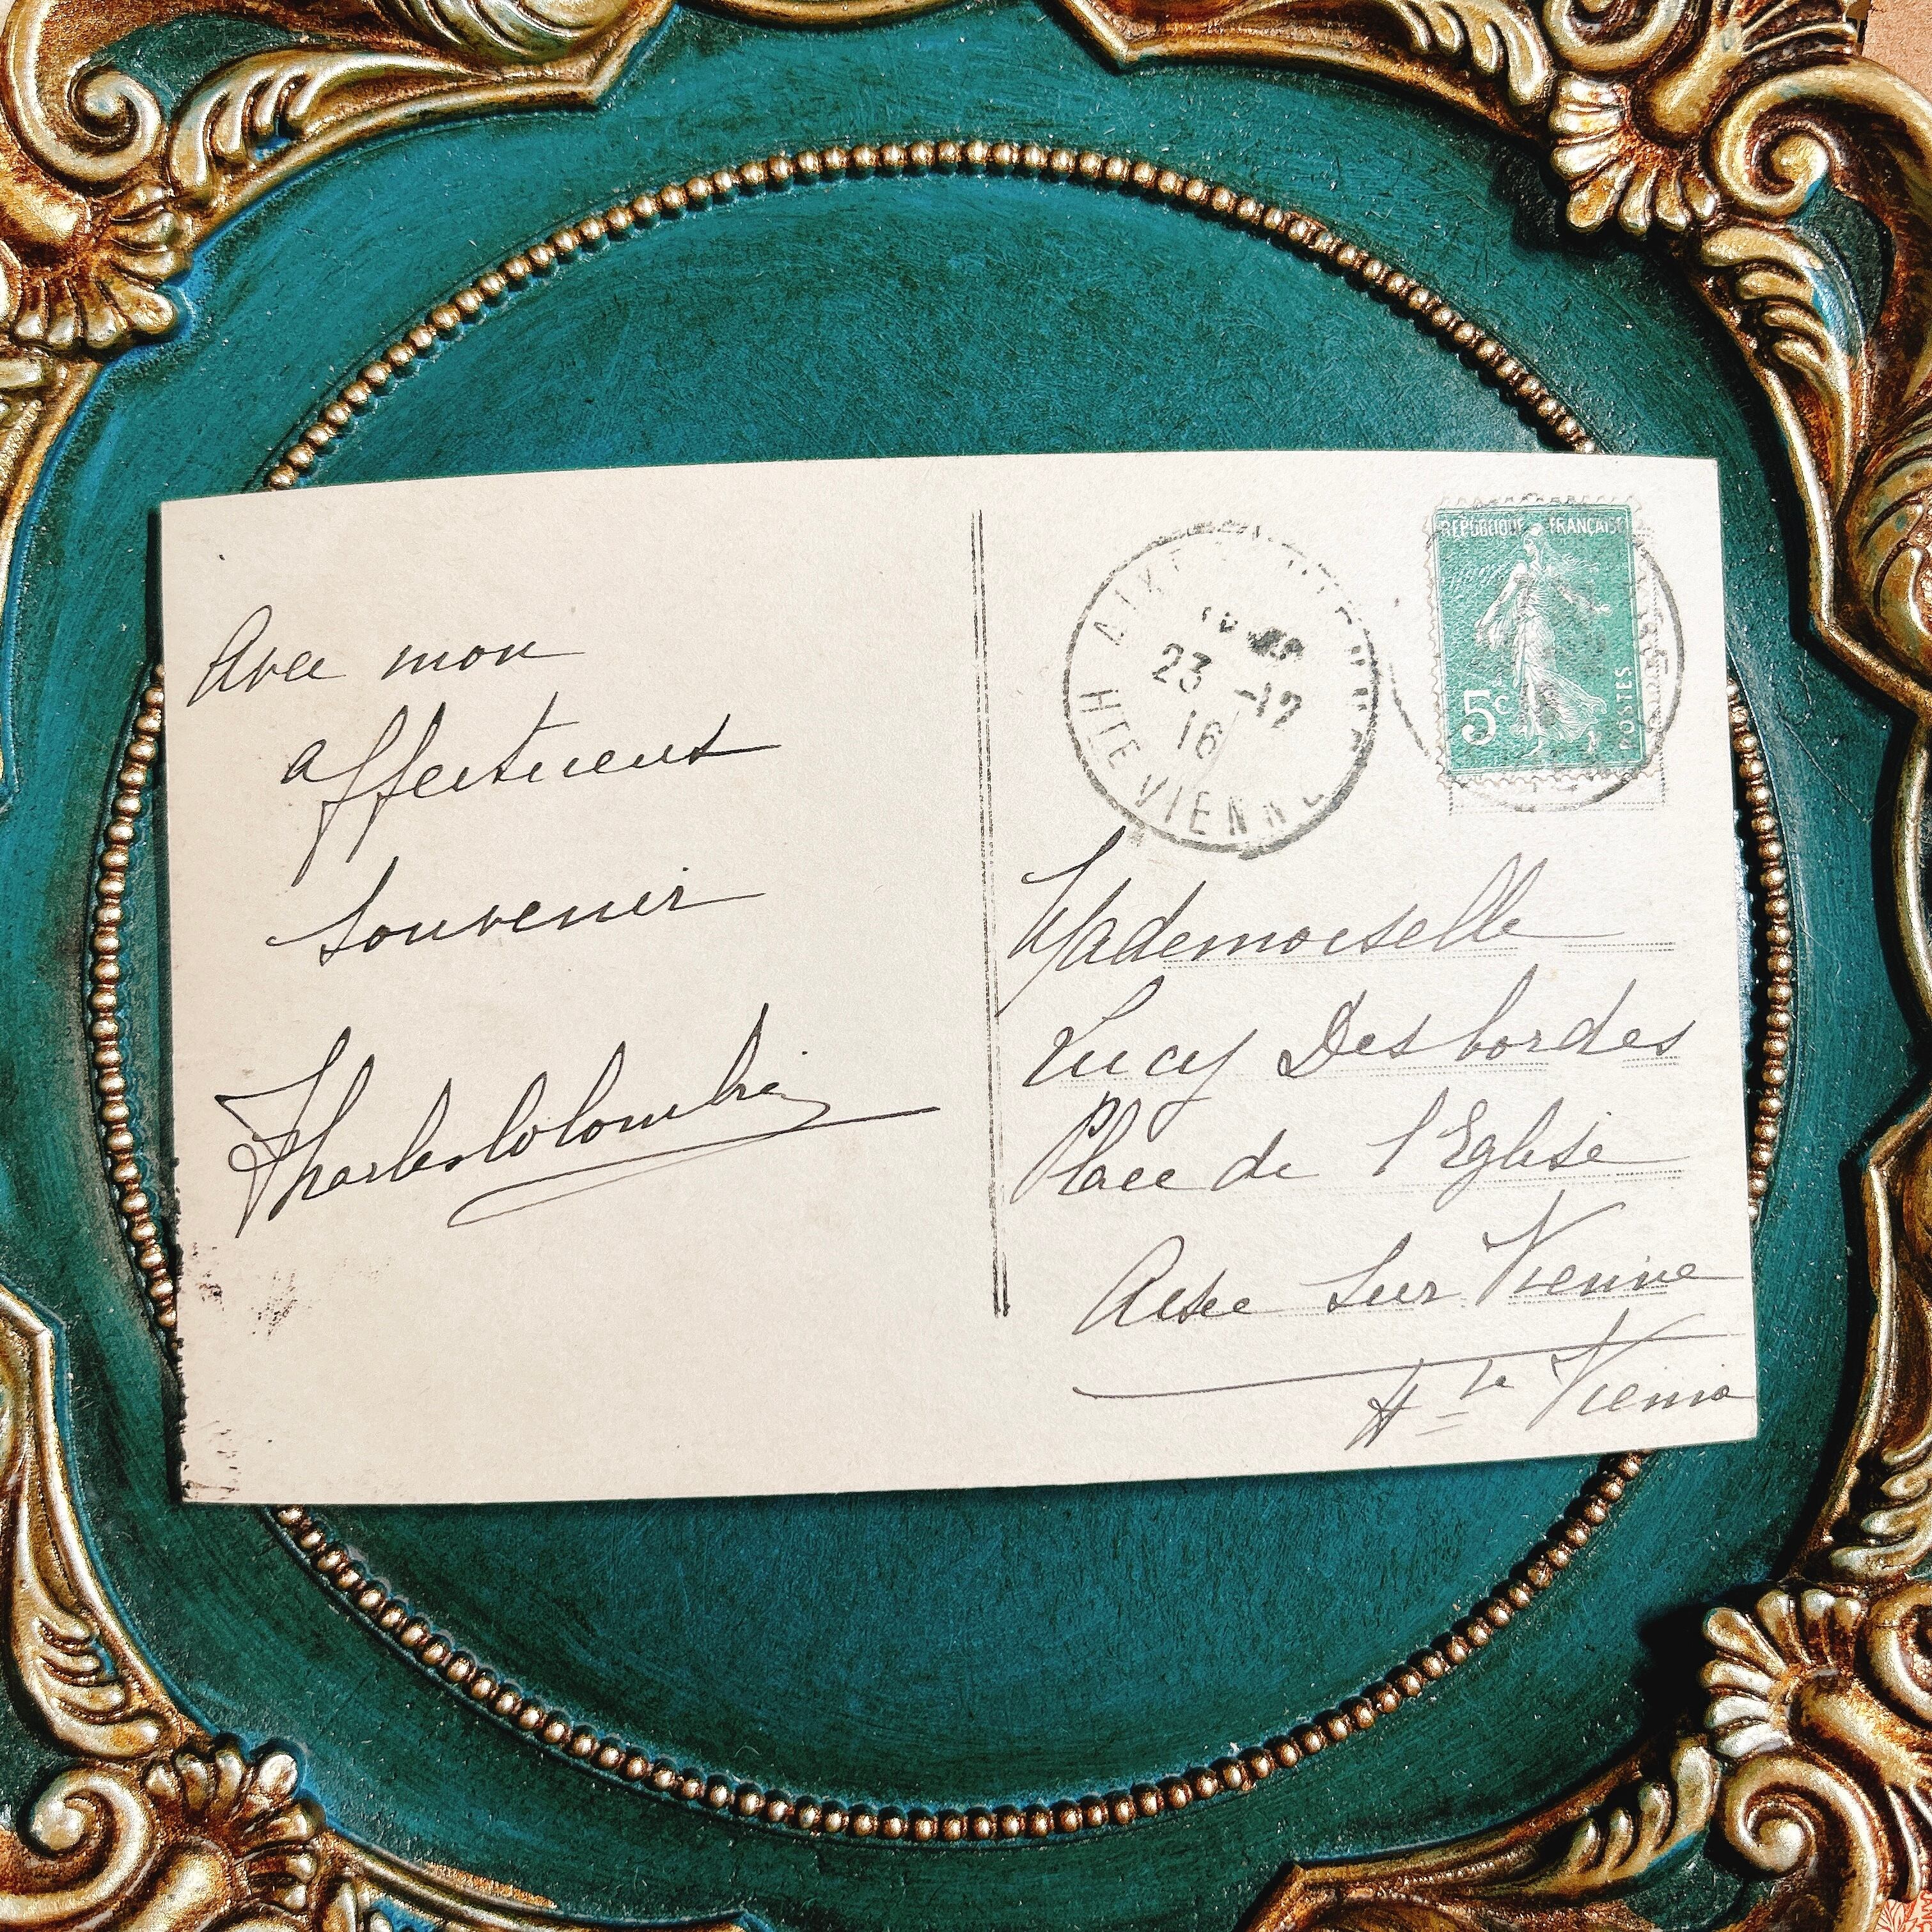 Avec mon
affectueux
souvenir
Charles Colombier
AIXE
23 -12
16
HTE VIENNE
REPUBLIQUE FRANÇAISE
5c
POSTES
Mademoiselle
Lucy Desbordes
Place de l'Eglise
Aixe sur Vienne
Hte Vienne